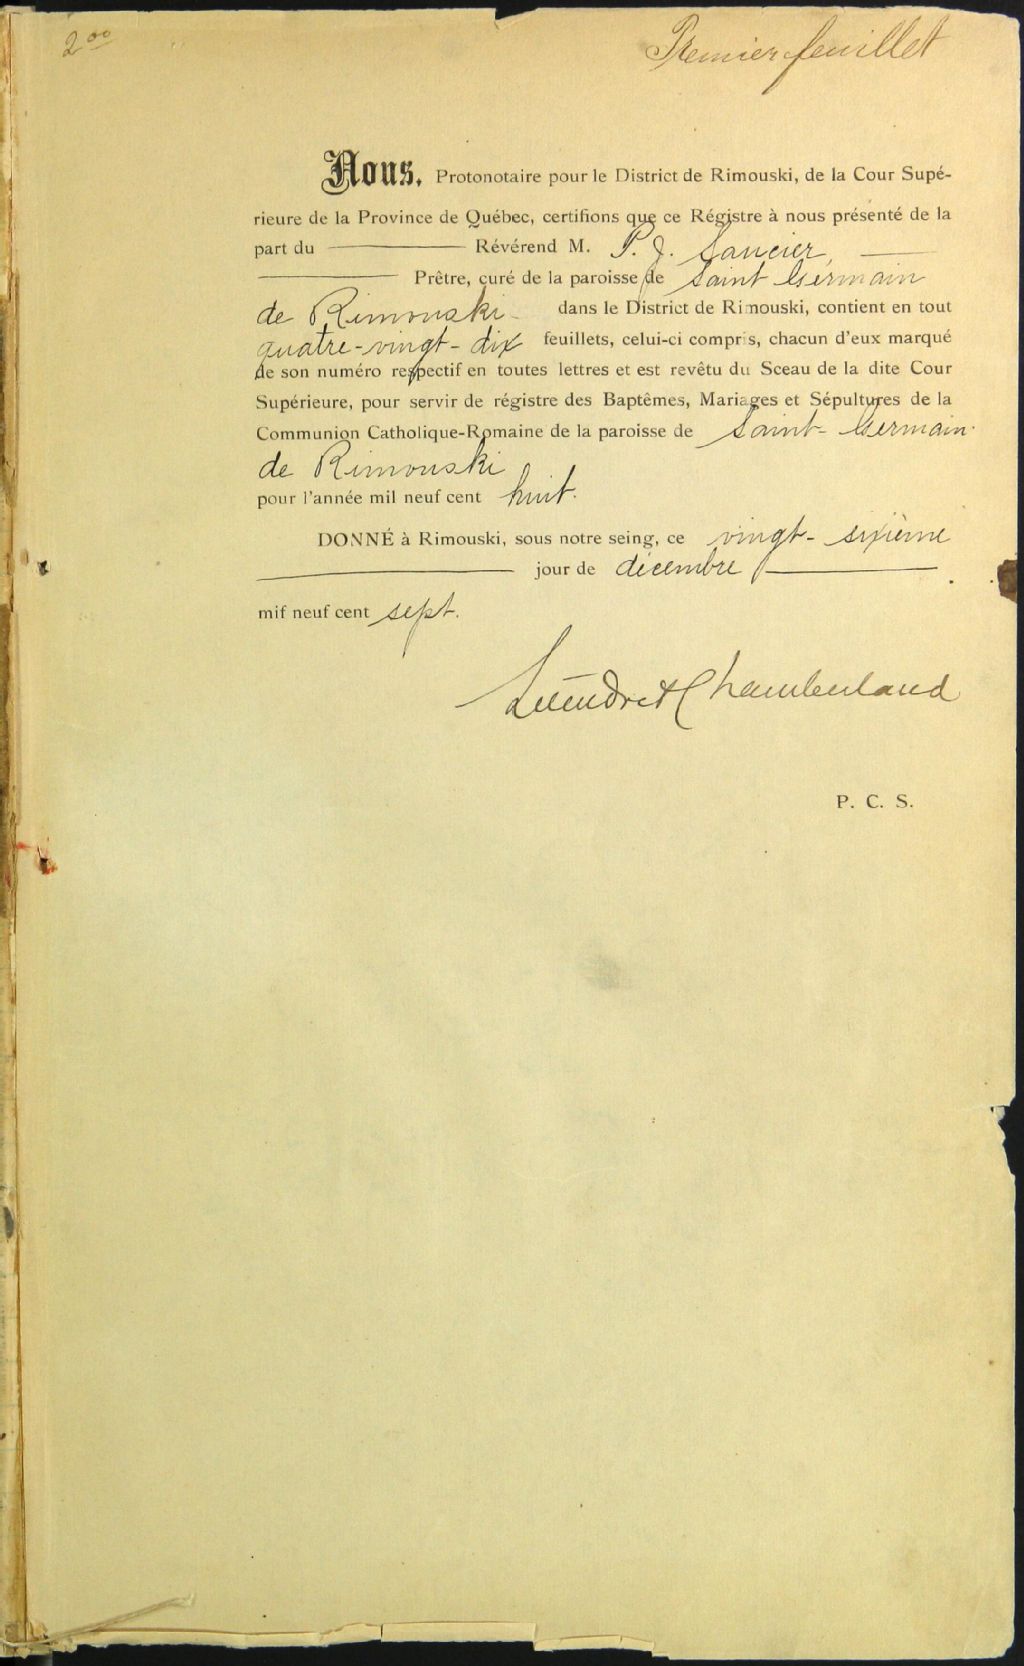 2 00
Premier feuillet
Nous, Protonotaire pour le District de Rimouski, de la Cour Supé-
rieure de la Province de Québec, certifions que ce Régistre à nous présenté de la
part du Révérend M. P. J. Saucier,
Prêtre, curé de la paroisse de Saint Germain
de Rimouski dans le District de Rimouski, contient en tout
quatre-vingt-dix feuillets, celui-ci compris, chacun d'eux marqué
de son numéro respectif en toutes lettres et est revêtu du Sceau de la dite Cour
Supérieure, pour servir de régistre des Baptêmes, Mariages et Sépultures de la
Communion Catholique-Romaine de la paroisse de Saint-Germain
de Rimouski
pour l'année mil neuf cent huit.
DONNÉ à Rimouski, sous notre seing, ce vingt-sixième
jour de décembre
mil neuf cent sept.
Chamberland
P. C. S.